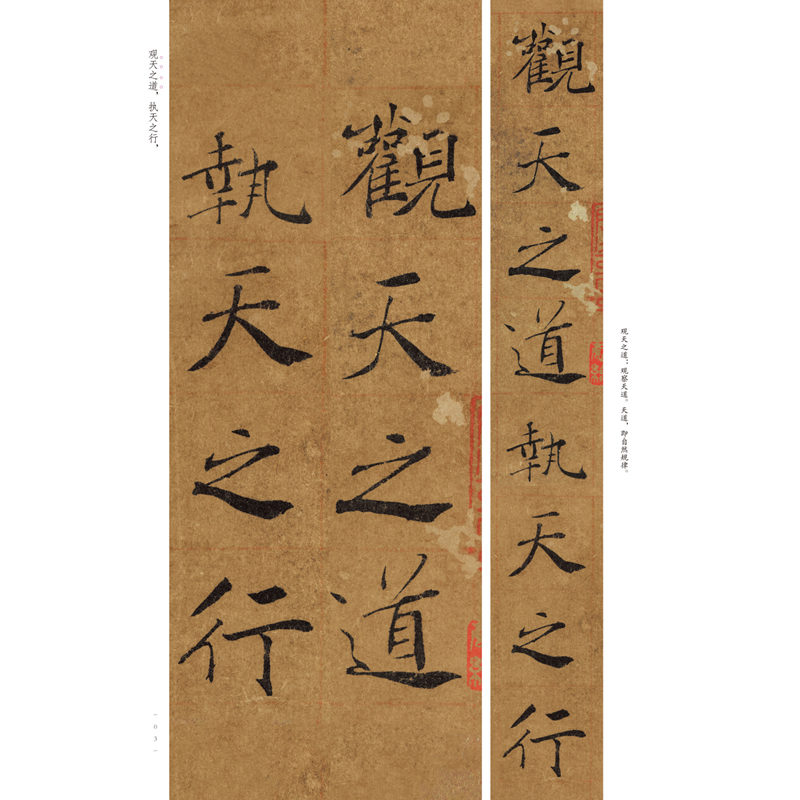 观天之道：观察天道。天道，即自然规律。
觀天之道執天之行
觀天之道
執天之行
观天之道，执天之行，
03